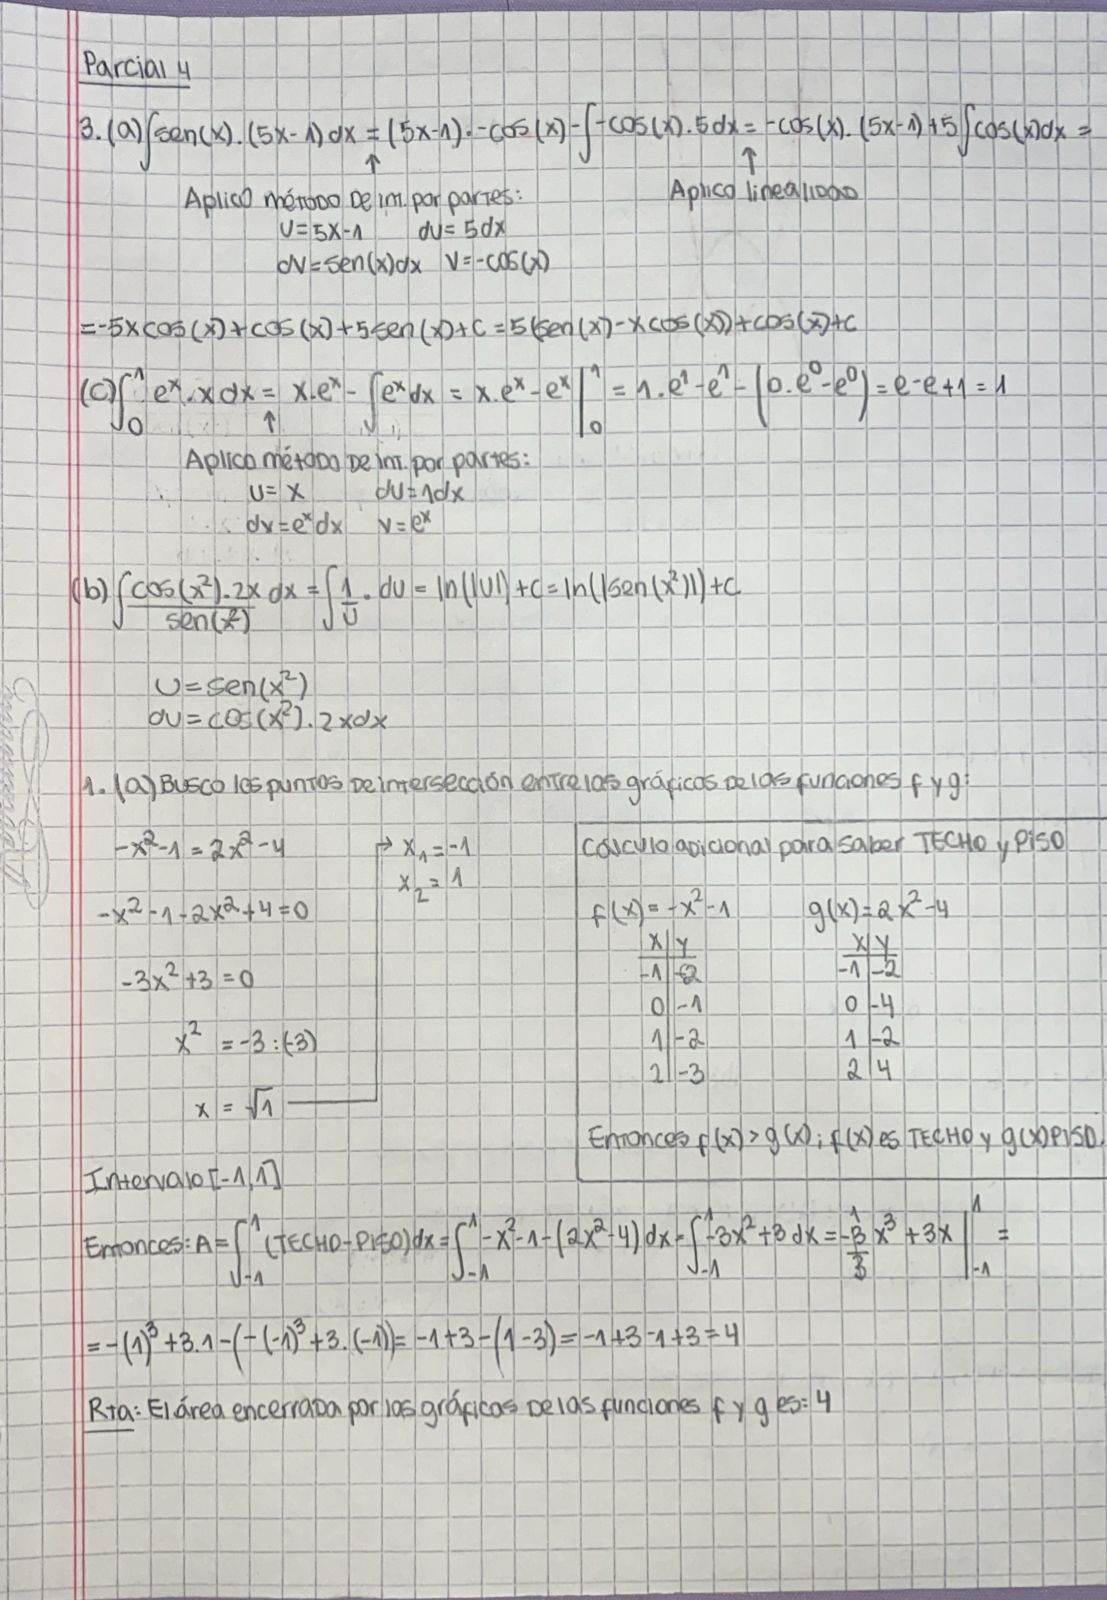 Parcial 4
3. (a) ∫sen(x).(5x-1)dx = (5x-1).-cos(x) - ∫-cos(x).5dx = -cos(x).(5x-1)+5∫cos(x)dx =
↑ ↑
Aplico método De int. por partes: Aplico linealidad
U=5x-1 du=5dx
dv=sen(x)dx v=-cos(x)
=-5xcos(x)+cos(x)+5sen(x)+C = 5(sen(x)-xcos(x))+cos(x)+C
(c) ∫₀¹ eˣ.x dx = x.eˣ - ∫eˣdx = x.eˣ-eˣ|₀¹ = 1.e¹-e¹-(0.e⁰-e⁰) = e-e+1 = 1
↑
Aplico método De int. por partes:
U=x du=1dx
dv=eˣdx v=eˣ
(b) ∫cos(x²).2x/sen(x²) dx = ∫1/U . du = ln(|U|)+C = ln(|sen(x²)|)+C
U=sen(x²)
du=cos(x²).2xdx
1. (a) Busco los puntos De intersección entre los gráficos De las funciones f y g:
-x²-1=2x²-4
→ x₁=-1
x₂=1
-x²-1-2x²+4=0
-3x²+3=0
x² = -3:(-3)
x = √1
Cálculo adicional para saber TECHO y PISO
f(x)=-x²-1 g(x)=2x²-4
x|y x|y
-1|-2 -1|-2
0|-1 0|-4
1|-2 1|-2
2|-3 2|4
Entonces f(x)>g(x); f(x) es TECHO y g(x) PISO.
Intervalo [-1,1]
Entonces: A=∫₋₁¹(TECHO-PISO)dx=∫₋₁¹-x²-1-(2x²-4)dx=∫₋₁¹-3x²+3dx=-3/3x³+3x|₋₁¹ =
=-(1)³+3.1-(-(-1)³+3.(-1))=-1+3-(1-3)=-1+3-1+3=4
Rta: El área encerrada por los gráficos De las funciones f y g es: 4